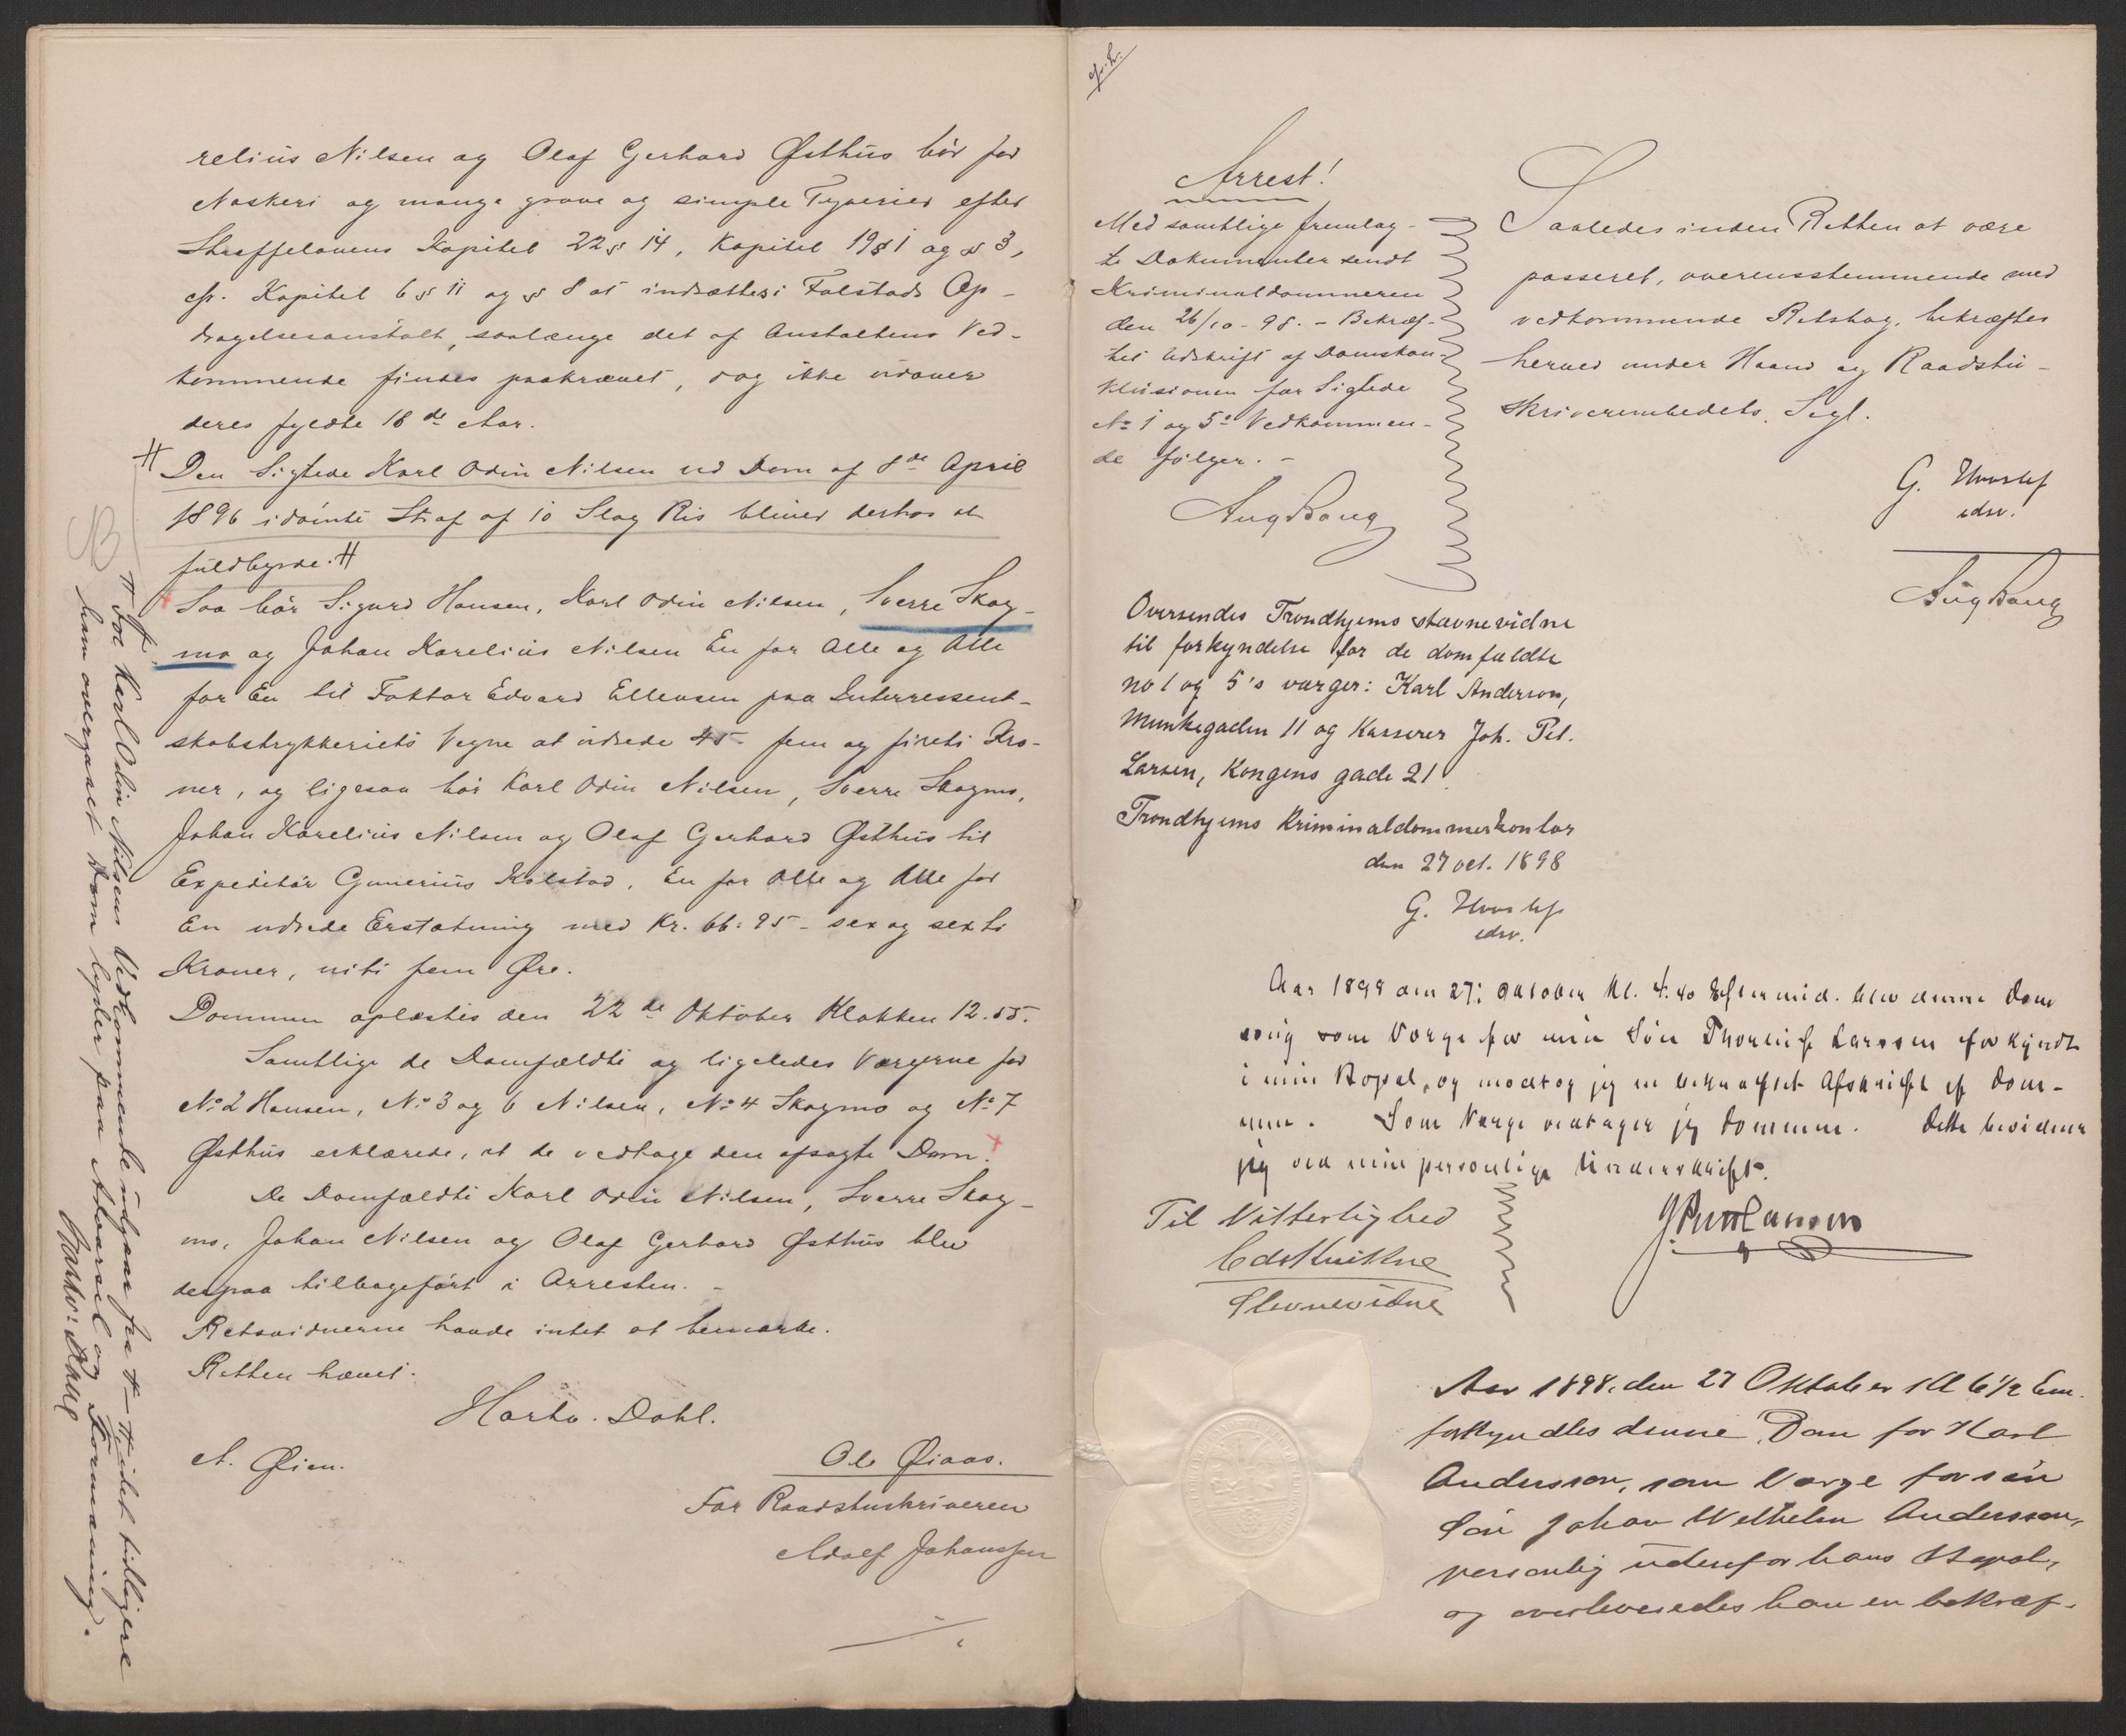 relius Nilsen og Olaf Gerhard Østhus bør for
Naskeri og mange grove og simple Tyverier efter
Straffelovens Kapitel 22 § 14, Kapitel 19 § 1 og § 3,
cfr. Kapitel 6 § 11 og § 8 at indsættes i Falstads Op-
dragelsesanstalt, saalænge det af Anstaltens Ved-
kommende findes paakrævet, dog ikke udover
deres fyldte 18de Aar.
# Den Sigtede Karl Odin Nilsen ved Dom af 8de April
1896 idømte Straf af 10 Slag Ris bliver derhos at
fuldbyrde. #
Saa bør Sigurd Hansen, Karl Odin Nilsen, Sverre Skog-
mo og Johan Karelius Nilsen En for Alle og Alle
for En til Faktor Edvard Ellevsen paa Interressent-
skabstrykkeriets Vegne at udrede 45 fem og fireti Kro-
ner, og ligesaa bør Karl Odin Nilsen, Sverre Skogmo,
Johan Karelius Nilsen og Olaf Gerhard Østhus til
Expeditør Gunerius Kolstad, En for Alle og Alle for
En udrede Erstatning med Kr. 66.95 - sex og sexti
Kroner, niti fem Øre.
Dommen oplæstes den 22de Oktober Klokken 12.55.
Samtlige de Domfældte og ligeledes Værgerne for
No 2 Hansen, No 3 og 6 Nilsen, No 4 Skogmo og No 7
Østhus erklærede, at de vedtage den afsagte Dom.
De Domfældte Karl Odin Nilsen, Sverre Skog-
mo, Johan Nilsen og Olaf Gerhard Østhus blev
derpaa tilbageført i Arresten. -
Retsvidnerne havde intet at bemærke.
Retten hævet.
Hartv. Dahl.
A. Øien.
Ole Øiaas.
For Raadstuskriveren
Adolf Johanssen
# For Karl Odin Nilsens Vedkommende udgaar fra # - #, idet tidligere
ham overgaaet Dom lyder paa Advarsel og Formaning.
Hartv: Dahl
Arrest!
Med samtlige fremlag-
te Dokumenter sendt
Kriminaldommeren
den 26/10 - 98. - Bekræf-
tet Udskrift af Domskon-
klusionen for Sigtede
No 1 og 5's Vedkommen-
de følger. -
Aug Bang
Saaledes inden Retten at være
passeret, overensstemmende med
vedkommende Retsbog, bekræftes
herved under Haand og Raadstu-
skriverembedets Segl.
G.
edsv.
Aug Bang
Oversendes Trondhjems stævnevidne
til forkyndelse for de domfældte
no 1 og 5's værger: Karl Anderson,
Munkegaden 11 og Kasserer Joh. Pet.
Larsen, Kongens gade 21
Trondhjems Kriminaldommerkontor
den 27 oct. 1898
G.
edsv.
Aar 1898 den 27: Oktober Kl. 4.40 Eftermid. blev denne Dom
mig som Værge for min Søn Thorleif Larssen forkyndt
i min Bopæl, og modtog jeg en bekræftet Afskrift af Dom-
men. Som Værge vedtager jeg Dommen. Dette bevidner
jeg ved min personlige Underskrift.
Til Vitterlighed
Stevnevidne
Aar 1898, den 27 Oktober Kl 6 1/2 Em.
forkyndtes denne Dom for Karl
Andersson, som Værge for sin
Søn Johan Wilhelm Andersson,
personlig udenfor hans Bopæl,
og overleveredes han en bekræf-